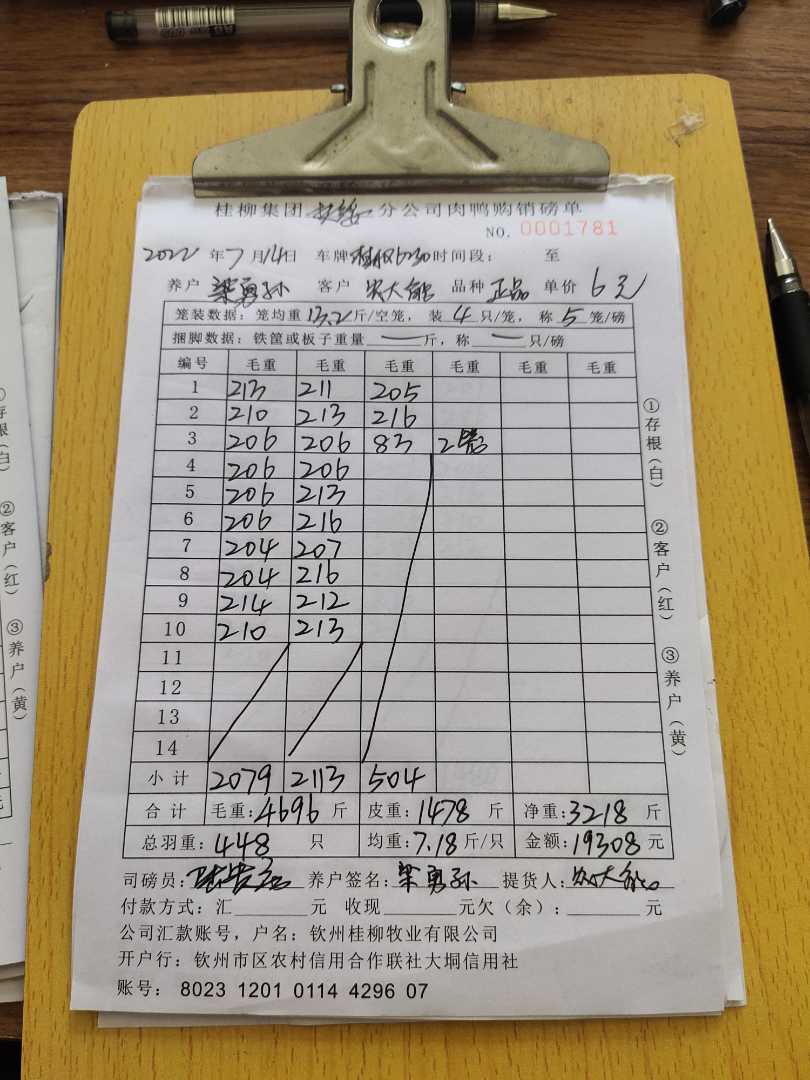 桂柳集团 分公司肉鸭购销磅单
NO. 0001781
2022年7月14日 车牌 时间段： 至
养户 梁勇孙 客户 大能 品种 正品 单价 6元
笼装数据：笼均重13.2斤/空笼，装4只/笼，称5笼/磅
捆脚数据：铁筐或板子重量——斤，称——只/磅
编号 毛重 毛重 毛重 毛重 毛重 毛重
1 213 211 205
2 210 213 216
3 206 206 83 2笼
4 206 206
5 206 213
6 206 216
7 204 207
8 204 216
9 214 212
10 210 213
11
12
13
14
小计 2079 2113 504
合计 毛重:4696斤 皮重:1478斤 净重:3218斤
总羽重:448只 均重:7.18斤/只 金额:19308元
司磅员: 养户签名:梁勇孙 提货人: 大能
付款方式：汇______元 收现______元欠（余）：______元
公司汇款账号，户名：钦州桂柳牧业有限公司
开户行：钦州市区农村信用合作联社大垌信用社
账号： 8023 1201 0114 4296 07
①存根（白）
②客户（红）
③养户（黄）
②客户（红）
③养户（黄）